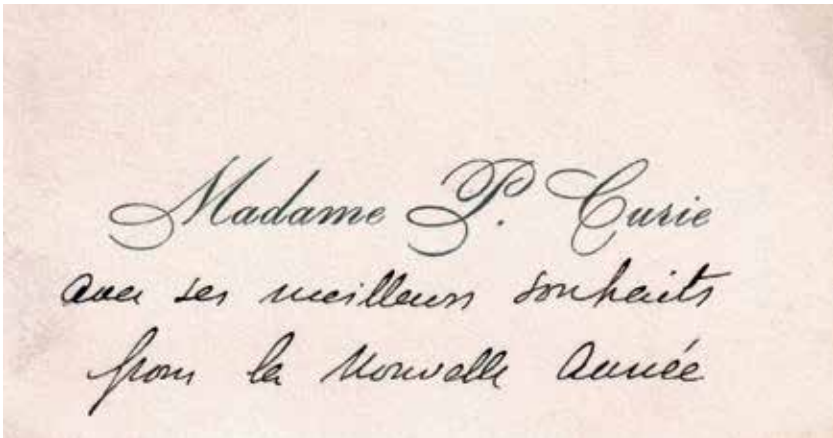 Madame P. Curie
avec ses meilleurs souhaits
pour la Nouvelle Année